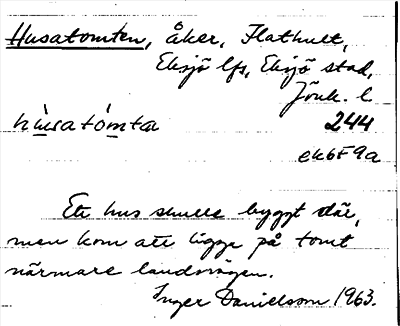 Husatomten, åker, Flathult,
Eksjö lfs, Eksjö stad,
Jönk. l
hùsatòmta 244
ek6F9a
Ett hus skulle byggt där,
men kom att ligga på tomt
närmare landsvägen.
Inger Danielsson 1963.